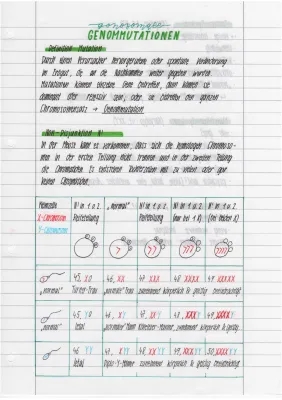 gonosomale
GENOMMUTATIONEN
Definition Mutation
Durch einen Verursacher hervorgerufene oder spontane Veränderung
im Erbgut, die an die Nachkommen weiter gegeben werden.
Mutationen können einzelne Gene betreffen, dann können sie
dominant oder rezessiv sein, oder sie betreffen den ganzen
Chromosomensatz → Genommutation
Non Disjunktion N!
In der Meiose kann es vorkommen, dass sich die homologen Chromoso-
men in der ersten Teilung nicht trennen und in der zweiten Teilung
die Chromatiden. Es entstehen Keimzellen mit zu vielen oder gar
keinen Chromatiden.
Keimzelle
X-Chromosom
Y-Chromosom
N! in 1 o. 2
Reifeteilung
"normal"
N! in 1 o. 2
Reifeteilung
N! in 1 o. 2
(nur bei 1 X)
N! in 1 o. 2
(bei beiden X)
"normal" 45, X0 46, XX 47, XXX 48, XXXX 49, XXXXX
Turner-Frau "normale" Frau zunehmend körperlich & geistig
"normal" 45, Y0 46, XY 47, XXY 48, XXXY 49, XXXXY
letal "normaler" Mann Klinefelter-Männer, zunehmend körperlich & geistig
46, YY 47, XYY 48, XXYY 49, XXXYY 50, XXXXYY
letal Diplo-Y-Männer zunehmend körperlich & geistig